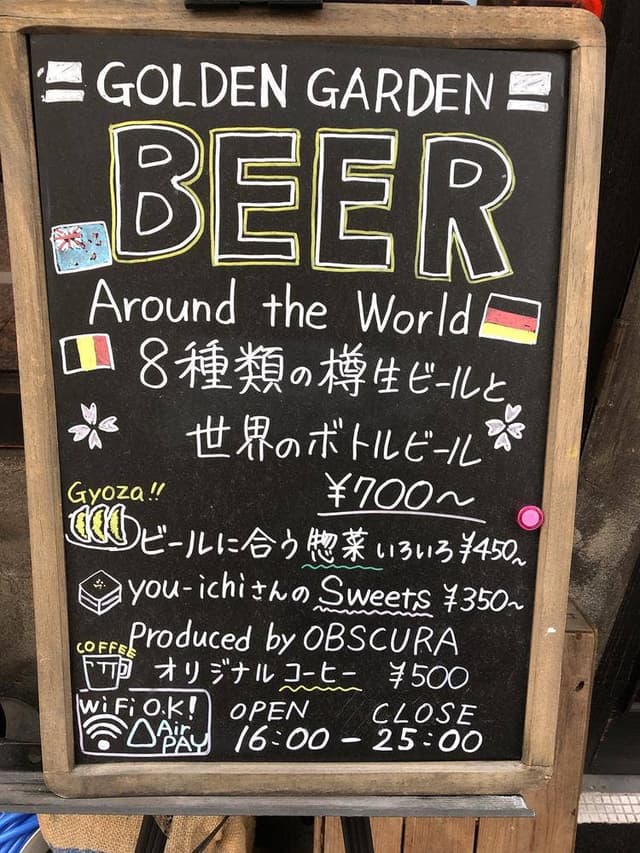 GOLDEN GARDEN
BEER
Around the World
8種類の樽生ビールと
世界のボトルビール
¥700～
Gyoza!!
ビールに合う惣菜いろいろ¥450～
you-ichiさんのSweets ¥350～
Produced by OBSCURA
COFFEE
オリジナルコーヒー ¥500
WiFi O.K!
Air PAY
OPEN CLOSE
16:00-25:00